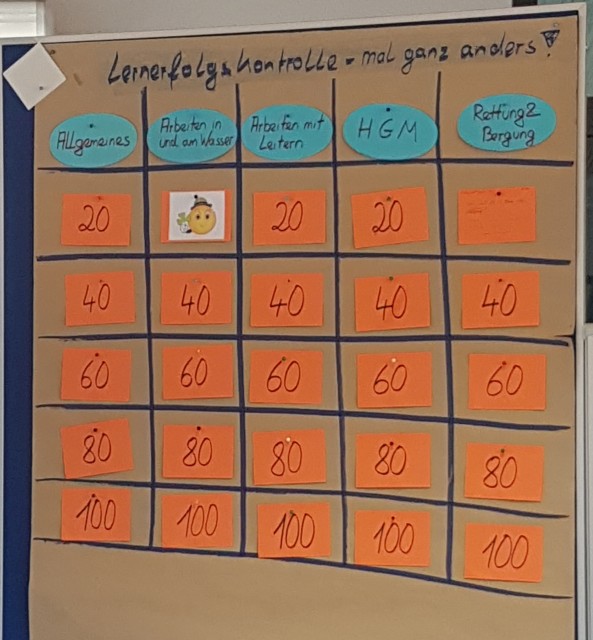 Lernerfolgskontrolle - mal ganz anders!
Allgemeines
Arbeiten in
und am Wasser
Arbeiten mit
Leitern
HGM
Rettung &
Bergung
20 20 20
40 40 40 40 40
60 60 60 60 60
80 80 80 80 80
100 100 100 100 100